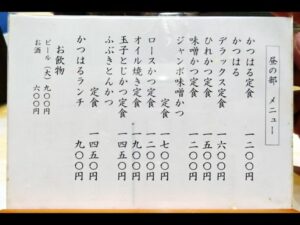 昼の部 メニュー
かつはる定食 一二〇〇円
かつはる
デラックス定食 一六〇〇円
ひれかつ定食 一五〇〇円
味噌かつ定食 一二〇〇円
ジャンボ味噌かつ
定食 一七〇〇円
ロースかつ定食 一二〇〇円
オイル焼き定食 一九〇〇円
玉子とじかつ定食 一四五〇円
ふぶきとんかつ
定食 一四五〇円
かつはるランチ 九〇〇円
お飲物
ビール(大) 九〇〇円
お酒 六〇〇円